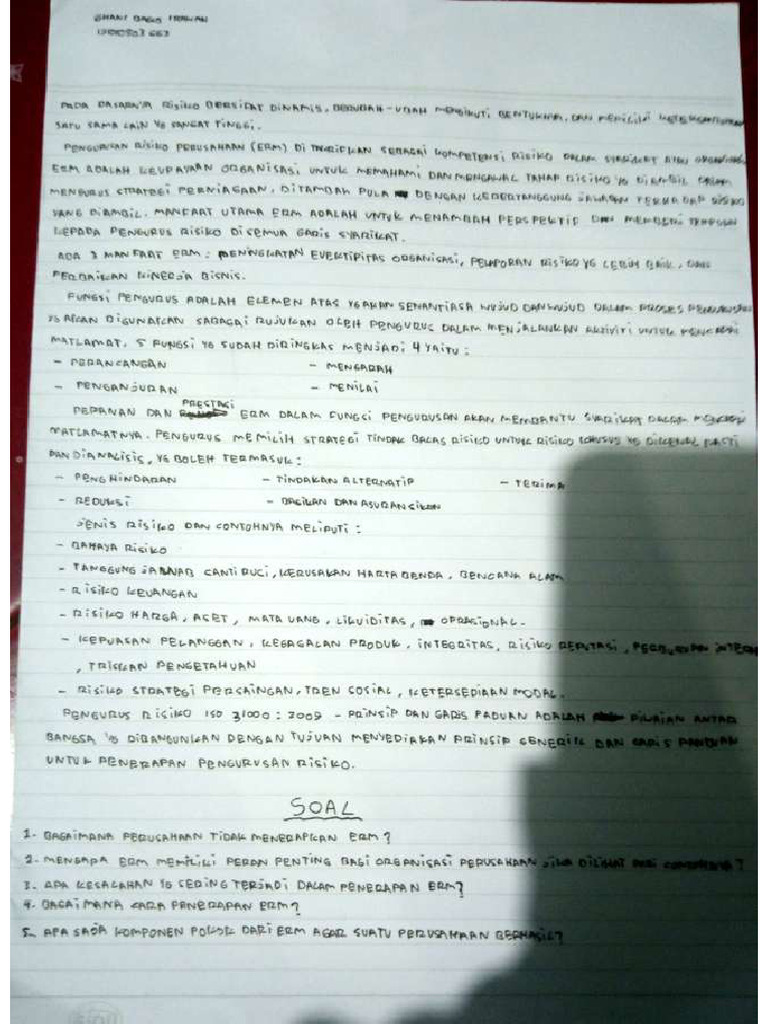 BAGUS
PADA DASARNYA RISIKO BERSIFAT DINAMIS, BERUBAH-UBAH MENGIKUTI BENTUKNYA, DAN MEMILIKI
SATU SAMA LAIN YG SANGAT TINGGI.
PENGURUSAN RISIKO PERUSAHAAN (ERM) DI SEBAGAI KOMPETENSI RISIKO DALAM SYARIKAT ATAU
ERM ADALAH KEUPAYAAN ORGANISASI UNTUK MEMAHAMI DAN MENGAWAL TAHAP RISIKO YG DIAMBIL DALAM
MENGURUS STRATEGI PERNIAGAAN, DITAMBAH PULA DENGAN KEBERTANGGUNG JAWABAN TERHADAP RISIKO
YANG DIAMBIL. MANFAAT UTAMA ERM ADALAH UNTUK MENAMBAH PERSPEKTIF DAN MEMBERI
KEPADA PENGURUS RISIKO DI SEMUA GARIS SYARIKAT.
ADA 3 MANFAAT ERM : PENINGKATAN ORGANISASI, PELAPORAN RISIKO YG LEBIH BAIK, DAN
PERBAIKAN KINERJA BISNIS.
FUNGSI PENGURUS ADALAH ELEMEN ATAS YG AKAN SENANTIASA WUJUD DAN WUJUD DALAM PROSES
YG AKAN DIGUNAKAN SABAGAI RUJUKAN OLEH PENGURUS DALAM MENJALANKAN AKTIVITI UNTUK
MATLAMAT. 5 FUNGSI YG SUDAH DIRINGKAS MENJADI 4 YAITU :
- PERANCANGAN - MENGARAH
- PENGANJURAN - MENILAI
PEPANAN DAN PRESTASI ERM DALAM FUNGSI PENGURUSAN AKAN MEMBANTU SYARIKAT DALAM
MATLAMATNYA. PENGURUS MEMILIH STRATEGI TINDAK BALAS RISIKO UNTUK RISIKO KHUSUS YG DIKENAL PASTI
DAN DIANALISIS, YG BOLEH TERMASUK :
- PENGHINDARAN - TINDAKAN ALTERNATIF - TERIMA
- REDUKSI - BAGIKAN DAN ASURANSIKAN
JENIS RISIKO DAN CONTOHNYA MELIPUTI :
- BAHAYA RISIKO
- TANGGUNG JAWAB , KERUSAKAN HARTA BENDA, BENCANA ALAM
- RISIKO KEUANGAN
- RISIKO HARGA, ASET, MATA UANG, LIKUIDITAS, OPERASIONAL.
- KEPUASAN PELANGGAN, KEGAGALAN PRODUK, INTEGRITAS, RISIKO REPUTASI,
, PENGETAHUAN
- RISIKO STRATEGI PERSAINGAN, TREN SOSIAL, KETERSEDIAAN MODAL.
PENGURUS RISIKO ISO 31000 : 2009 - PRINSIP DAN GARIS PADUAN ADALAH PIAWAIAN ANTAR
BANGSA YG DIBANGUNKAN DENGAN TUJUAN MENYEDIAKAN PRINSIP GENERIK DAN GARIS PANDUAN
UNTUK PENERAPAN PENGURUSAN RISIKO.
SOAL
1. BAGAIMANA PERUSAHAAN TIDAK MENERAPKAN ERM?
2. MENGAPA ERM MEMILIKI PERAN PENTING BAGI ORGANISASI PERUSAHAAN JIKA DILIHAT DARI
3. APA KESALAHAN YG SERING TERJADI DALAM PENERAPAN ERM?
4. BAGAIMANA CARA PENERAPAN ERM?
5. APA SAJA KOMPONEN POKOK DARI ERM AGAR SUATU PERUSAHAAN BERHASIL?